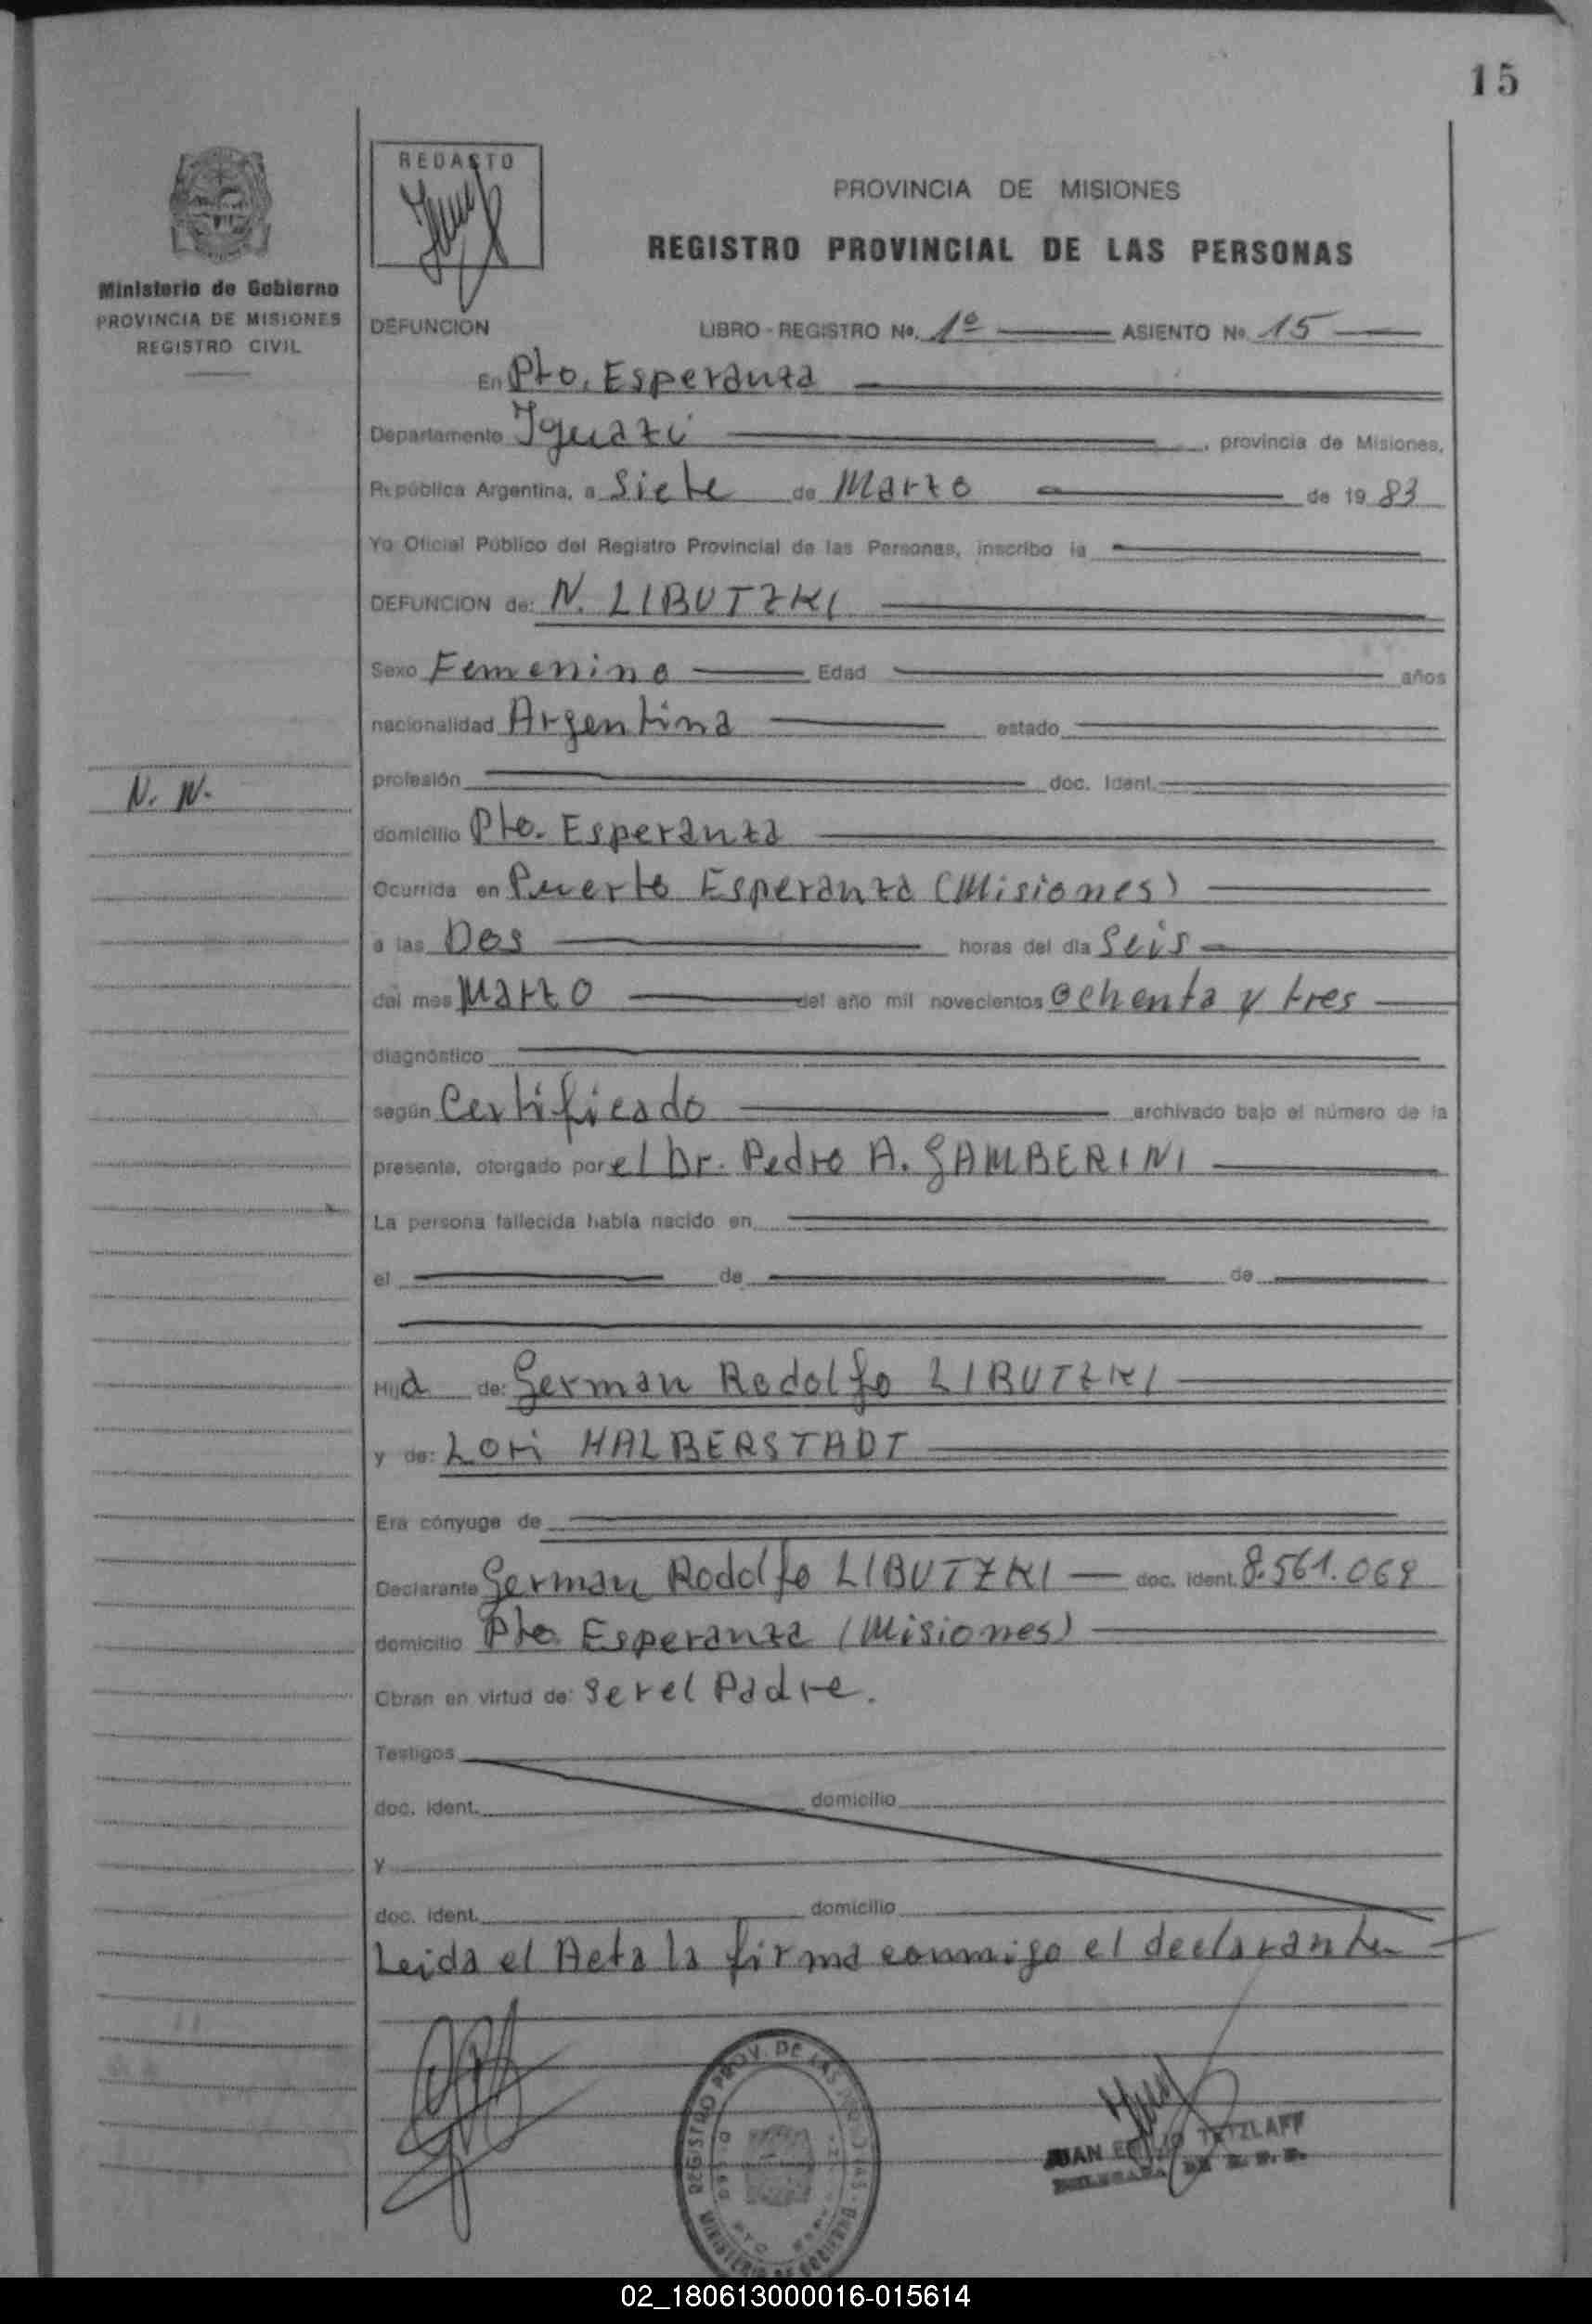 15
REDACTO
PROVINCIA DE MISIONES
REGISTRO PROVINCIAL DE LAS PERSONAS
Ministerio de Gobierno
PROVINCIA DE MISIONES
REGISTRO CIVIL
DEFUNCION LIBRO - REGISTRO No. 1º ASIENTO No. 15
En Pto. Esperanza
Departamento Iguazú, provincia de Misiones,
República Argentina, a Siete de Marzo de 19 83
Yo Oficial Público del Registro Provincial de las Personas, inscribo la
DEFUNCION de: N. LIBUTZKI
Sexo Femenino Edad años
nacionalidad Argentina estado
N. N.
profesión doc. Ident.
domicilio Pto. Esperanza
Ocurrida en Puerto Esperanza (Misiones)
a las Dos horas del día Seis
del mes Marzo del año mil novecientos ochenta y tres
diagnóstico
según Certificado archivado bajo el número de la
presente, otorgado por el Dr. Pedro A. GAMBERINI
La persona fallecida había nacido en
el de de
Hija de: German Rodolfo LIBUTZKI
y de: Lori HALBERSTADT
Era cónyuge de
Declarante German Rodolfo LIBUTZKI doc. ident. 8.561.069
domicilio Pto Esperanza (Misiones)
Obran en virtud de: Ser el Padre.
Testigos
doc. ident. domicilio
y
doc. ident. domicilio
Leida el Acta la firma conmigo el declarante
REGISTRO PROV. DE LAS PERSONAS
MINISTERIO DE GOBIERNO
JUAN EMILIO TETZLAFF
02_180613000016-015614